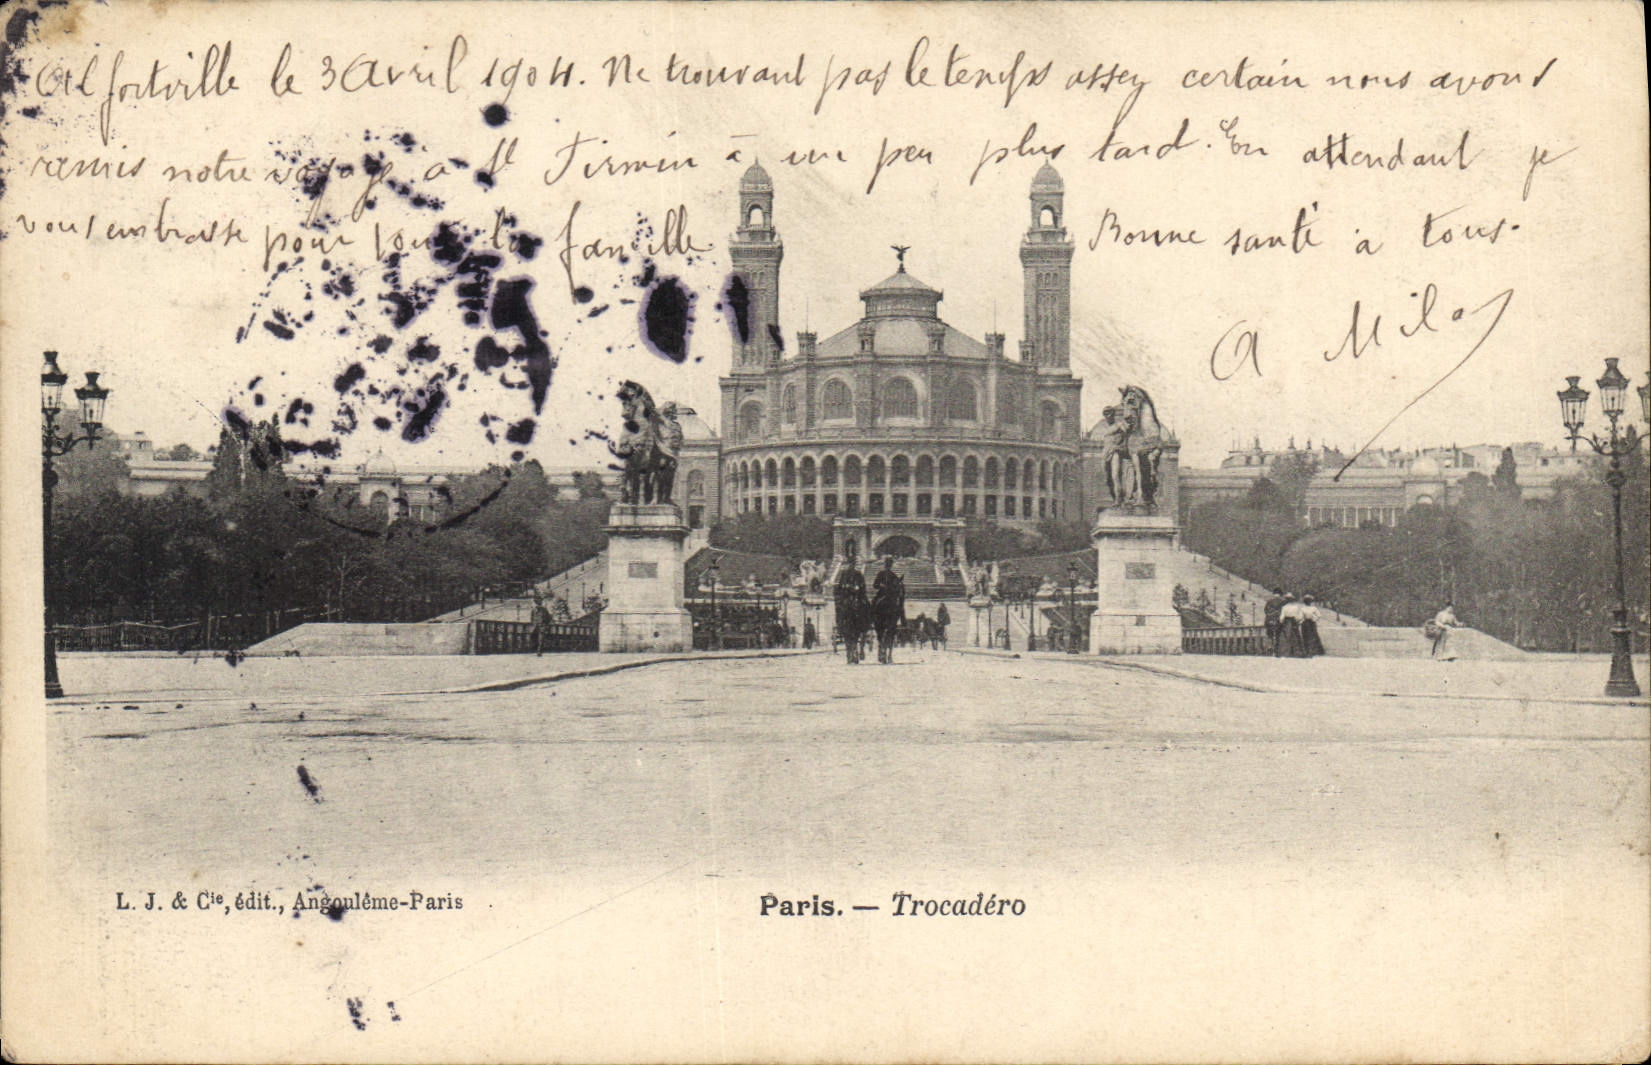 Alfortville le 3 Avril 1904. Ne trouvant pas le temps assez certain nous avons
remis notre voyage à St Firmin à un peu plus tard. En attendant je
vous embrasse pour toute la famille. Bonne santé à tous.
A Milo
L. J. & Cie, édit., Angoulême-Paris
Paris. — Trocadéro